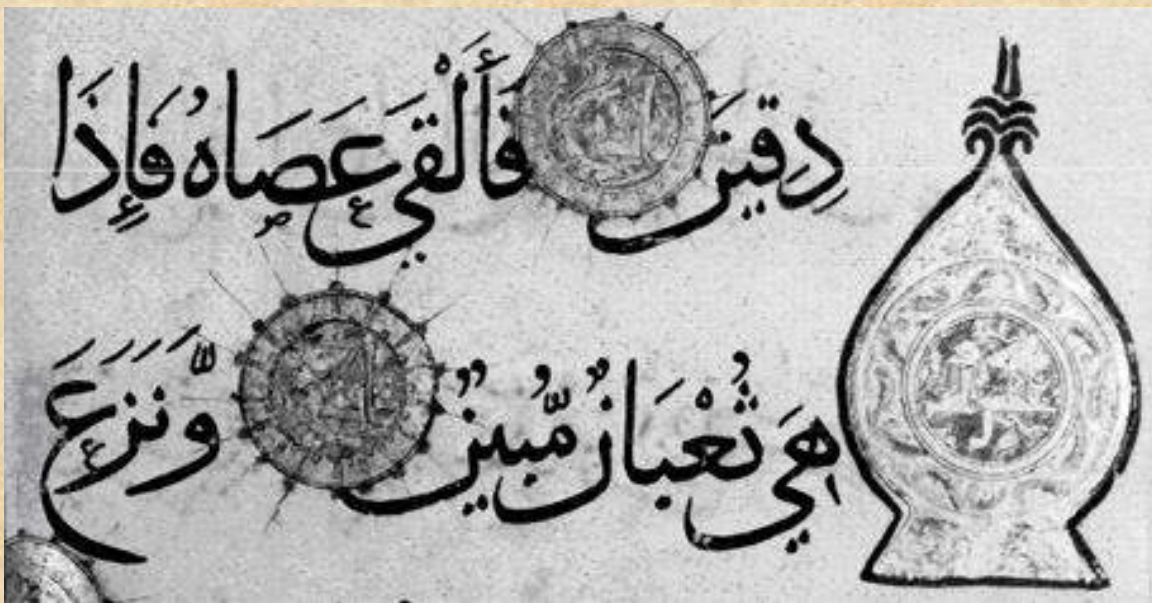 دِقِينَ فَأَلْقَي عَصَاهُ فَإِذَا
هِيَ ثُعْبَانٌ مُّبِينٌ وَّنَزَعَ